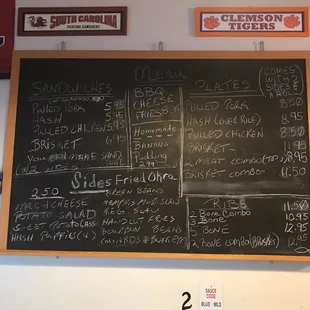 SOUTH CAROLINA
CLEMSON TIGERS
Menu
SANDWICHES
PULLED PORK 5.95
HASH 5.95
PULLED CHICKEN 5.95
BRISKET 6.95
BBQ
CHEESE
FRIES
Homemade
BANANA
Pudding
PLATES
COMES
WITH 2
SIDES
& ROLL
PULLED PORK 8.50
HASH (OVER RICE) 8.95
PULLED CHICKEN 8.50
BRISKET 11.95
2 MEAT COMBO 8.95
BRISKET COMBO 11.50
Sides Fried Okra
2.50
MAC & CHEESE
POTATO SALAD
SWEET POTATO CASS
HUSH PUPPIES
GREEN BEANS
MEMPHIS MUST. SLAW
REG. SLAW
HANDCUT FRIES
BOURBON BEANS
RIBS
2 BONE COMBO 11.50
3 BONE 10.95
BONE 12.95
2 BONE COMBO (BRISKET) 12.95
2
SAUCE
CODE:
BLUE MILD